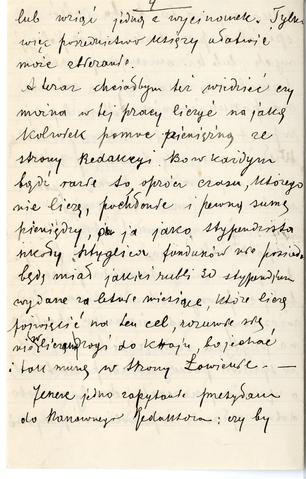 4
lub wziąć jedną z wycinowek. Tylko
więc pośrednictwo księży ułatwić
może zbieranie.
A teraz chciałbym też wiedzieć czy
można w tej pracy liczyć na jaką
kolwiek pomoc pieniężną ze
strony Redakcyi bo w każdym
bądź razie to, oprócz czasu, którego
nie liczę, pochłonie i pewną sumę
pieniędzy, a ja jako stypendista
szkoły funduszów nie posiadam
będę miał jakieś rubli 50 stypendium
wydane za letnie miesiące, które liczę
poświęcić na ten cel, rozumie się
nie licząc drogi do kraju, bo jechać
i tak muszę w strony Łowickie. —
Jeszcze jedno zapytanie przesyłam
do Szanownego Redaktora; czy by